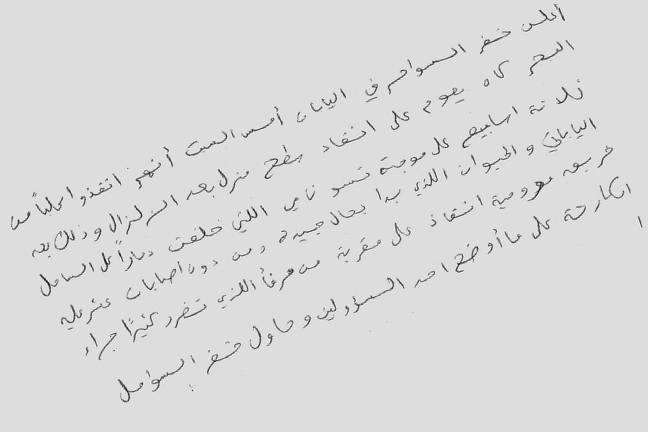 أعلن خفر السواحل في اليابان أمس السبت أنهم انقذوا كلبا من
البحر كان يعوم على انقاض سطح منزل بعد الزلزال وذلك بعد
ثلاثة اسابيع على موجة تسونامي اللتي خلفت دمارا على الساحل
الياباني و الحيوان اللذي بدا بحال جيدة ومن دون اصابات عثر عليه
فريق مروحية انقاذ على مقربة من مرفأ اللذي تضرر كثيرا جراء
الكارثة على ما أوضح احد المسؤولين و حاول خفر السواحل